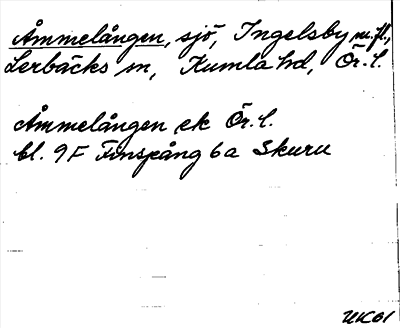 Åmmelången, sjö, Ingelsby m.fl.,
Lerbäcks sn, Kumla hd, Ör.l.
Åmmelången ek Ör.l.
bl. 9F Finspång 6a Skuru
UK61